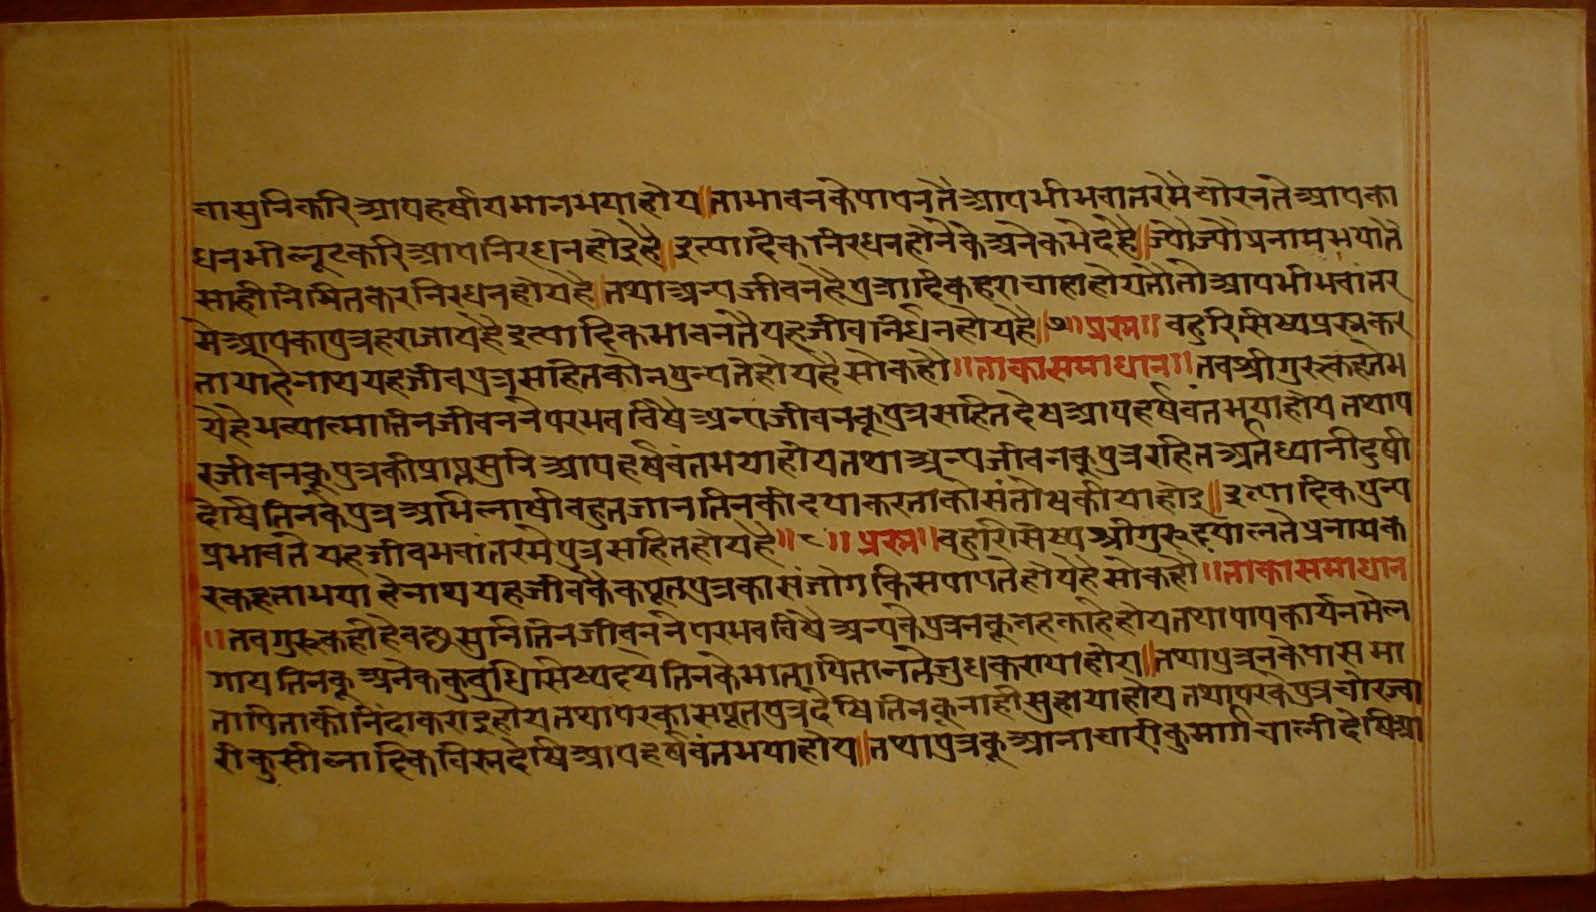 वासुनिकरि आपहर्षायमानभयाहोय॥ताभावनकेपापनतै आपभीभवातरमैचोरनते आपका
धनभीलूटकरि आपनिरधनहोइहै॥इत्यादिकनिरधनहोनेकेअनेकभेदहै॥ज्योज्योपरनामभयातै
साहीनिमितकरनिरधनहोयहै॥तथाअन्यजीवनहैपुत्रादिकहराचाहाहोयतौतोआपभीभवांतर
मेआपकापुत्रहराजायहैइत्यादिकभावनतैयहजीवनिर्धनहोयहै॥७॥प्रस्न॥ वहुरिसिष्यप्रस्नकर
तायाहेनाथयहजीवपुत्रसहितकौनपुन्यतेहोयहैसोकहौ॥ताकासमाधान॥तवश्रीगुरुकहतेभ
येहेभव्यात्मातिनजीवननेपरभवविषैअन्यजीवनकूपुत्रसहितदेषआपहर्षवंतभयाहोयतथाप
रजीवनकूपुत्रकीप्राप्तसुनिआपहर्षवंतभयाहोयतथाअन्यजीवनकुपुत्ररहितअर्तध्यानीदुषी
देषितिनकेपुत्रअभिलाषीवहुतजानतिनकीदयाकरताकोसंतोषकीयाहोइ॥इत्यादिकपुन्य
प्रभावतैयहजीवभवांतरमेपुत्रसहितहोयहै॥८॥प्रस्न॥वहुरिसिष्यश्रीगुरुदयालतेप्रनामक
रकहताभयाहेनाथयहजीवकैकपूतपुत्रकासंजोगकिसपापतेहोयहैसोकहो॥ताकासमाधान
॥तवगुरुकहीहैवछसुनितिनजीवननेपरभवविषैअन्यकेपुत्रनकूवहकाहेहोयतथापापकार्यनमेल
गायतिनकूअनेककुवुधिसिष्यदयेतिनकेमातापितानतेजुधकरायाहोय॥तथापुत्रनकेपासमा
तापिताकीनिंदाकराइहोयतथापरकासपूतपुत्रदेषितिनकूनाहीसुहायाहोयतथापरकेपुत्रचोरज्वा
रीकुसीलादिकविस्नदेषिआपहर्षवंतभयाहोय॥तथापुत्रकूआनाचारीकुमार्गचालीदेषिआ